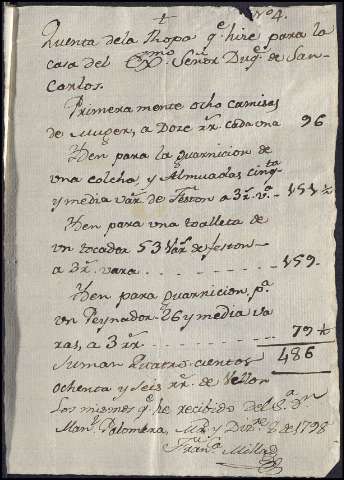 + Nº 4.
Quenta de la Rropa qᵉ hize para la
casa del Exᵐᵒ Señor Duqᵉ de San-
Carlos.
Primeramente ocho camisas
de Muger, a Doze rˢ cada una 96
Yten para la guarnicion de
una colcha, y Almuadas cinqᵗᵃ
y media varˢ de feston a 3 rˢ vᵃ 151 ½
Yten para una toalleta de
un tocador 53 varˢ de feston
a 3 rˢ vara . . . . . . . . . 159
Yten para guarnicion pᵃ
un Peynador 26 y media va
ras, a 3 rˢ . . . . . . . . 79 ½
Suman Quatro cientos 486
ochenta y seis rˢ de Vellon
Los mismos qᵉ he recibido del Sʳ Dⁿ
Manˡ Palomera, Mᵈ y de 1798
Franᶜᵃ Milla